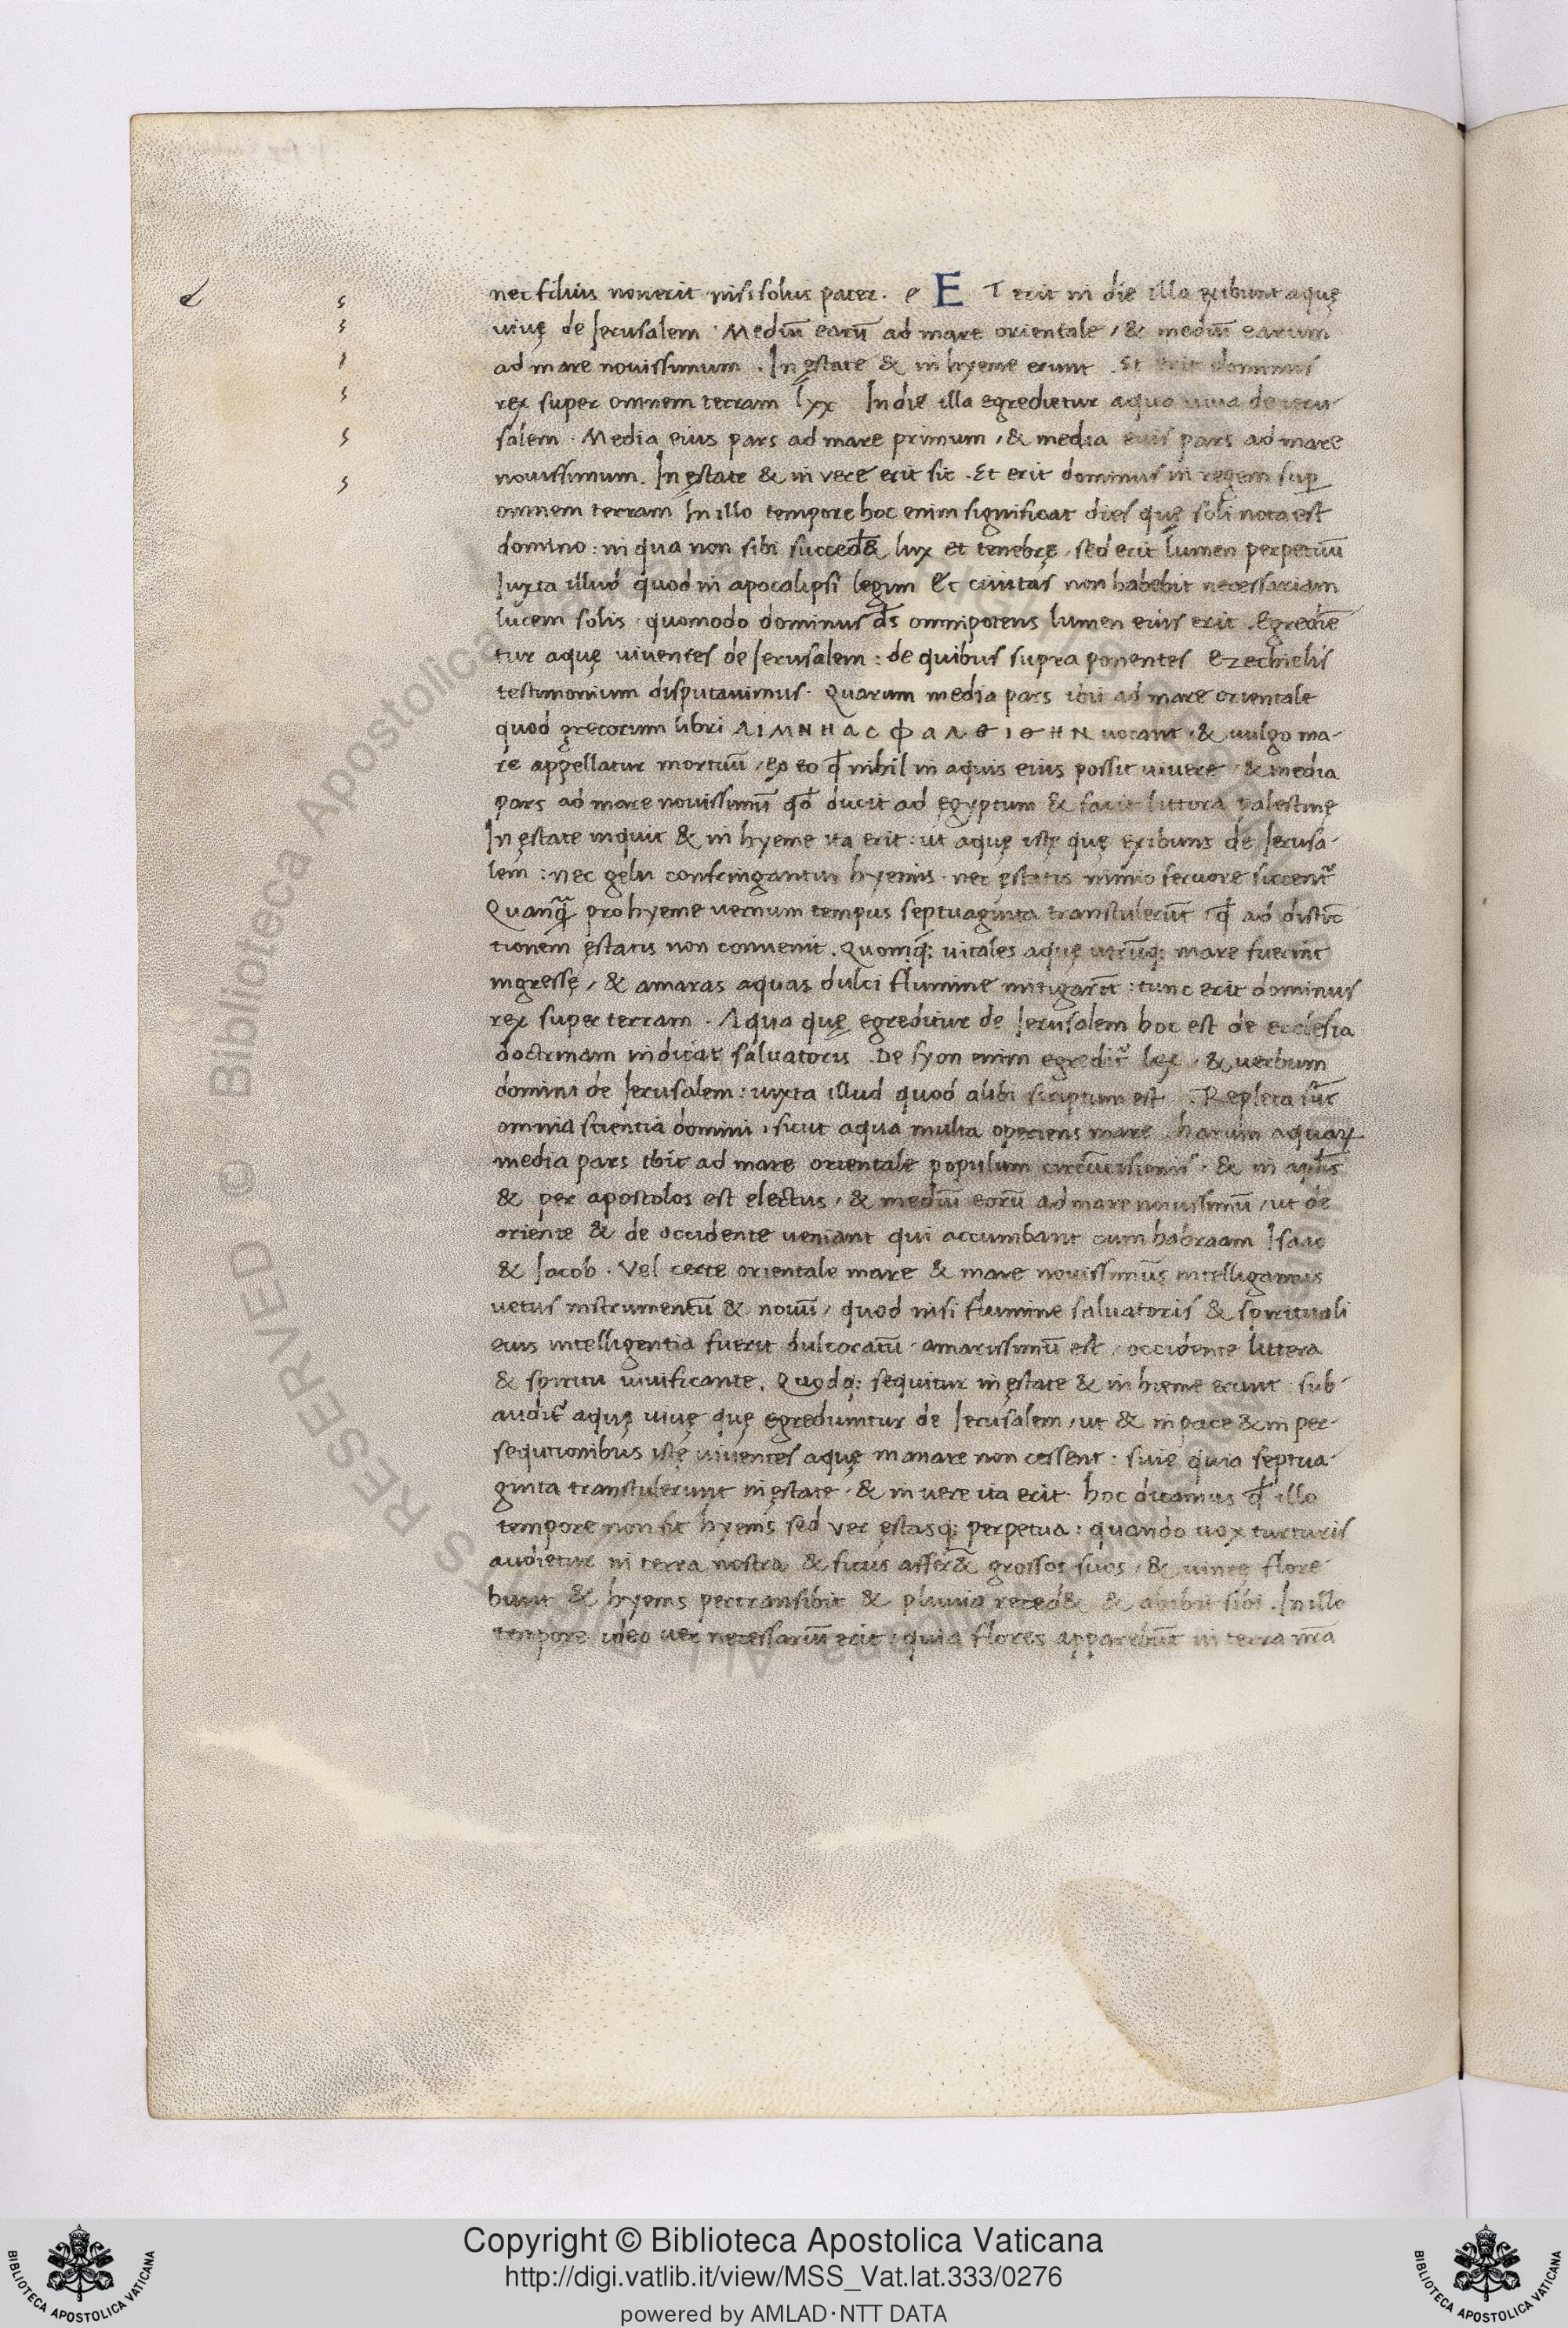 nec filius noverit nisi solus pater. e E T erit in die illa exibunt aquę
vivę de Jerusalem. Mediū earū ad mare orientale, & mediū earum
ad mare novissimum. In ęstate & in hyeme erunt. Et erit dominus
rex super omnem terram lxx In die illa egredietur aqua viva de ieru-
salem. Media eius pars ad mare primum, & media eius pars ad mare
novissimum. In ęstate & in vere erit sic. Et erit dominus in regem sup
omnem terram In illo tempore hoc enim significat dies quę soli nota est
domino: in qua non sibi succed& lux et tenebrę, sed erit lumen perpetuū
Iuxta illud quod in apocalipsi legim Et civitas non habebit necessariam
lucem solis, quomodo dominus d̄s omnipotens lumen eius erit. Egrediē
tur aquę viventes de Jerusalem: de quibus supra ponentes Ezechielis
testimonium disputavimus. Quarum media pars ibit ad mare orientale
quod grecorum libri ΛΙΜΝΗΑC ΦΑΛΘΙΘΗΝ vocant, & vulgo ma-
re appellatur mortuū, ex eo qđ nihil in aquis eius possit vivere, & media
pars ad mare novissimū qđ ducit ad ęgyptum & facit littora palestinę
In ęstate inquit & in hyeme ita erit: ut aquę istę quę exibunt de Jerusa-
lem: nec gelu confringantur hyemis. nec ęstatis nimio fervore siccent᷑
Quanq̄ pro hyeme vernum tempus septuaginta transtulerūt, qđ ad distīc
tionem ęstatis non convenit. Quomq; vitales aquę utrūq; mare fuerint
ingressę, & amaras aquas dulci flumine mitigarīt: tunc erit dominus
rex super terram. Aqua quę egreditur de Jerusalem hoc est de ecclesia
doctrinam indicat salvatoris. De syon enim egredit᷑ lex, & verbum
domini de Jerusalem: iuxta illud quod alibi scriptum est. Repleta sūt
omnia scientia domini, sicut aqua multa operiens mare. harum aquaꝝ
media pars ibit ad mare orientale populum circūcisionis, & in aplīs
& per apostolos est electus, & mediū eorū ad mare novissimū, ut de
oriente & de occidente veniant qui accumbant cum habraam Isaac
& Jacob. Vel certe orientale mare & mare novissimūs intelligamus
vetus instrumentū & novū, quod nisi flumine salvatoris & spirituali
eius intelligentia fuerit dulcoratū. amarissimū est, occidente littera
& spiritu vivificante. Quodq; sequitur in ęstate & in hieme erunt: sub-
audit᷑ aquę vivę quę egrediuntur de Jerusalem, ut & in pace & in per-
sequtionibus istę viventes aquę manare non cessent: sive quia septua-
ginta transtulerunt in ęstate, & in vere ita erit. hoc dicamus qđ illo
tempore non sit hyems sed ver ęstasq; perpetua: quando vox turturis
audietur in terra nostra & ficus asser& grossos suos, & vineę flore-
bunt & hyems pertransibit & pluvia reced& & abibit sibi. In illo
tempore ideo ver necessariū erit, quia flores apparebūt in terra nr̄a
Copyright © Biblioteca Apostolica Vaticana
http://digi.vatlib.it/view/MSS_Vat.lat.333/0276
powered by AMLAD·NTT DATA